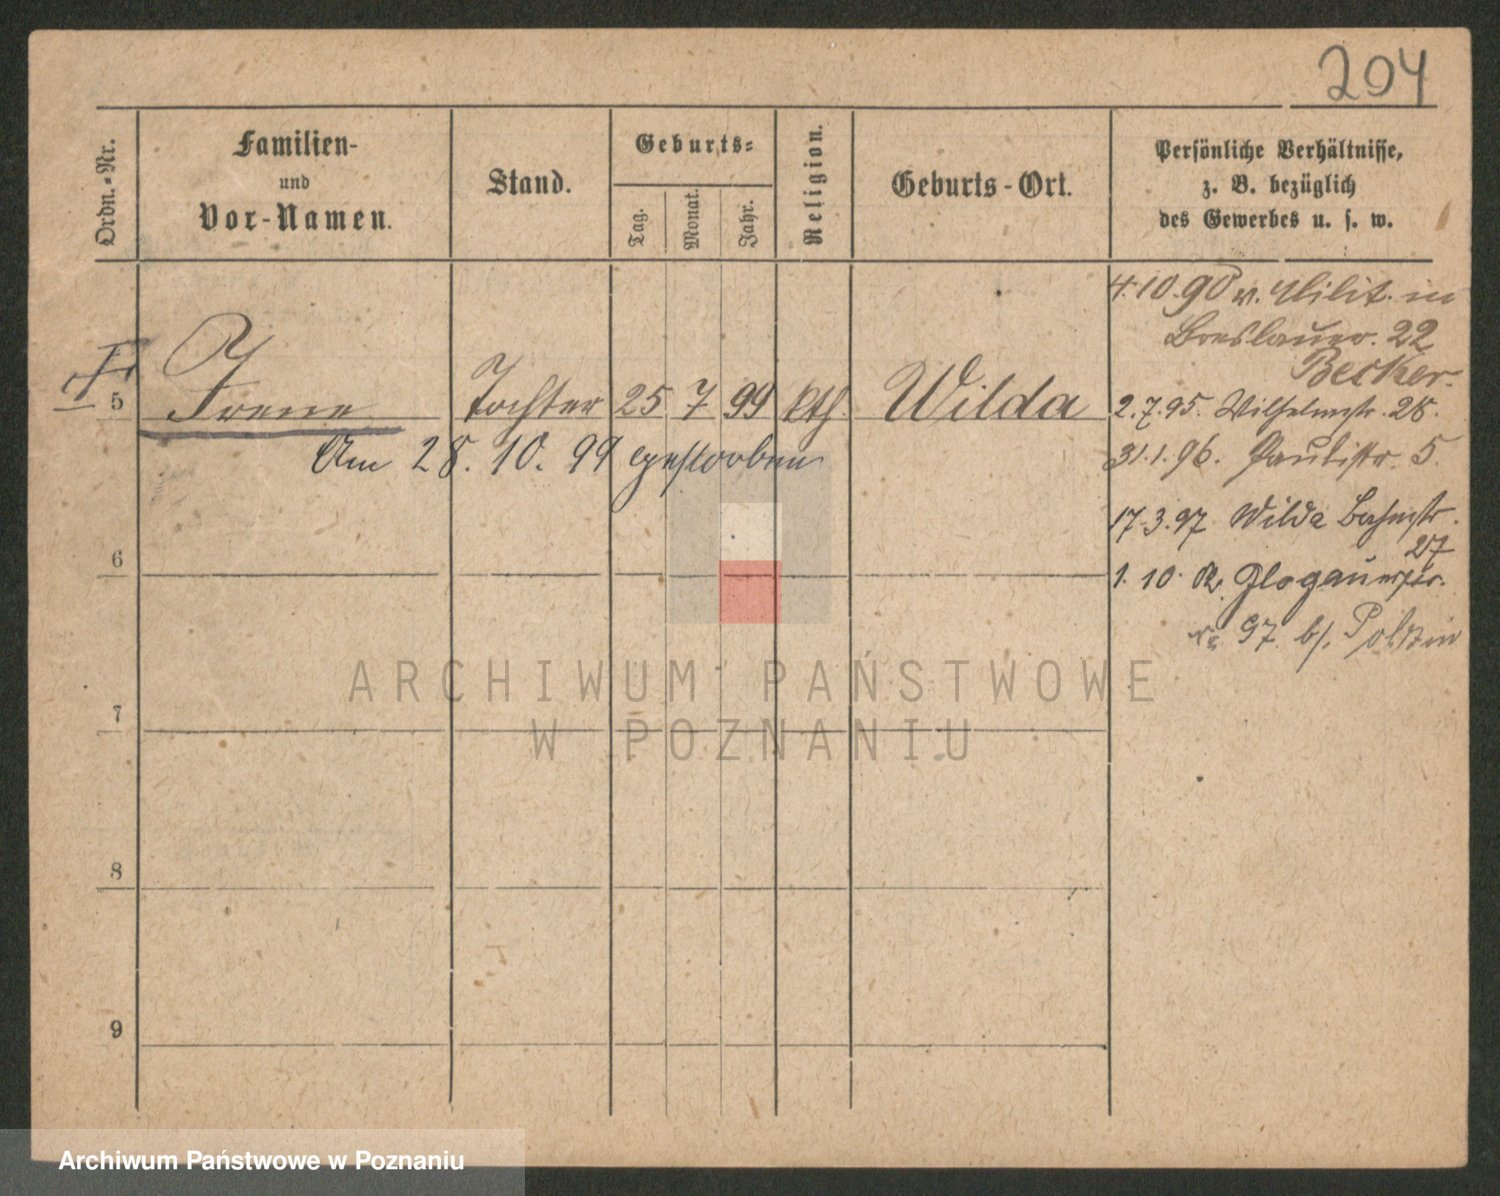 204
Ordn.-Nr.
Familien-
und
Vor-Namen.
Stand.
Geburts-
Tag.
Monat.
Jahr.
Religion.
Geburts-Ort.
Persönliche Verhältnisse,
z. B. bezüglich
des Gewerbes u. s. w.
5 Irene Tochter 25 7 99 kth. Wilda
Am 28. 10. 99 gestorben
6
7
8
9
4.10.90 v. Milit. in
Breslauer. 22
Becker.
2.7.95. Wilhelmstr. 28.
31.1.96. Paulistr. 5.
17.3.97 Wilda Bahnstr.
27
1. 10. Glogauerstr.
97 b/. Polzin
ARCHIWUM PAŃSTWOWE
W POZNANIU
Archiwum Państwowe w Poznaniu